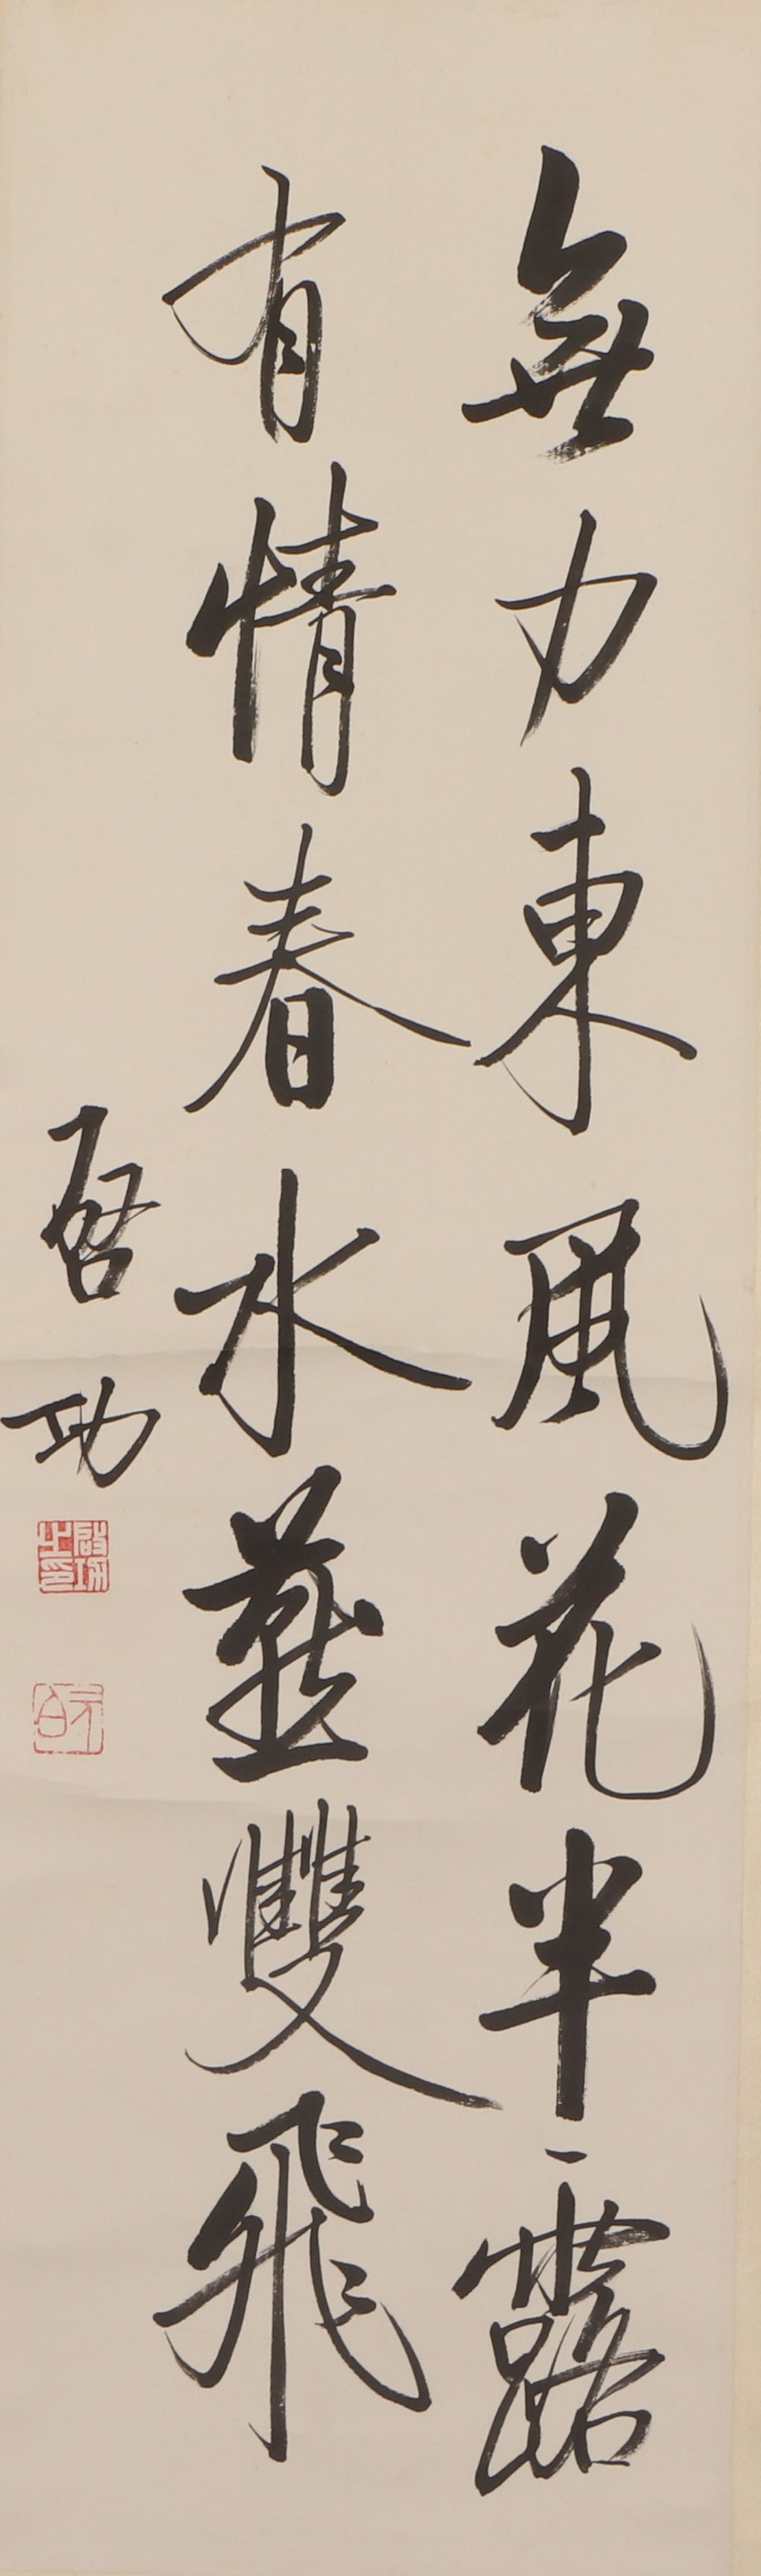 無力東風花半露
有情春水燕雙飛
啓功
啟功之印
元白